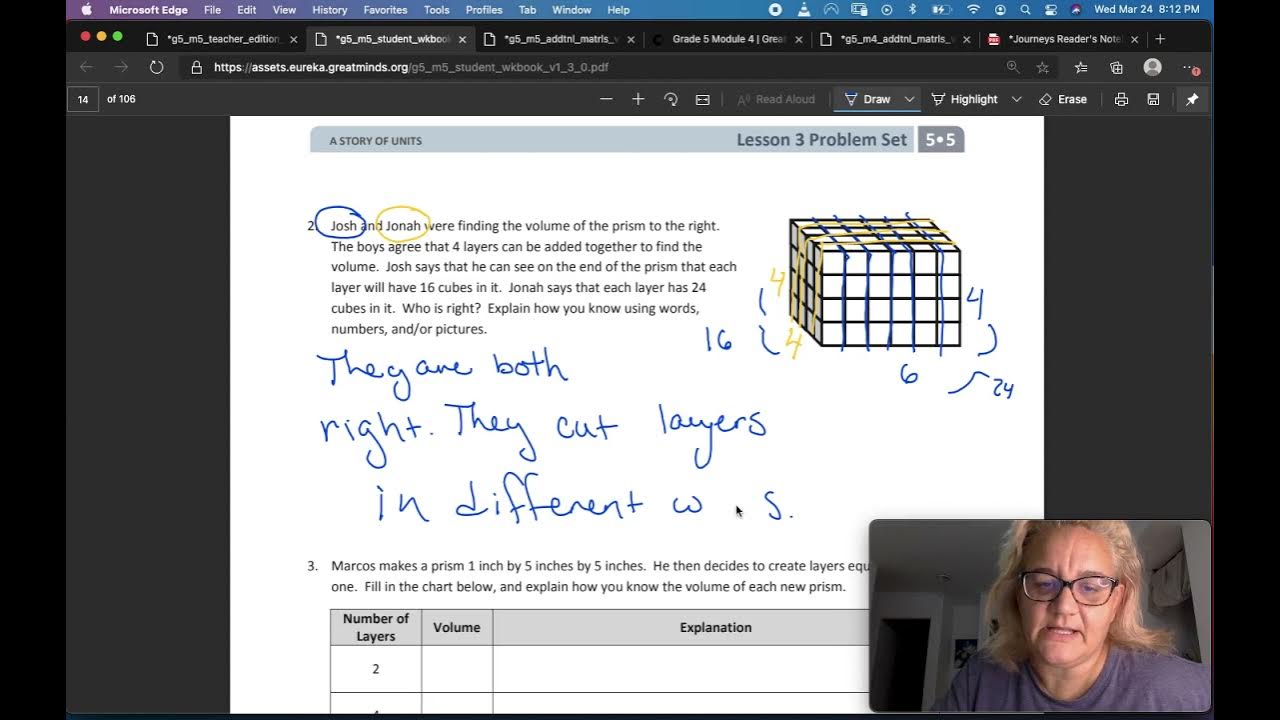 Microsoft Edge File Edit View History Favorites Tools Profiles Tab Window Help Wed Mar 24 8:12 PM
*g5_m5_teacher_edition *g5_m5_student_wkboo *g5_m5_addtnl_matrls_v Grade 5 Module 4 | Grea *g5_m4_addtnl_matrls_ *Journeys Reader's Note
https://assets.eureka.greatminds.org/g5_m5_student_wkbook_v1_3_0.pdf
14 of 106 Read Aloud Draw Highlight Erase
A STORY OF UNITS Lesson 3 Problem Set 5•5
2. Josh and Jonah were finding the volume of the prism to the right.
The boys agree that 4 layers can be added together to find the
volume. Josh says that he can see on the end of the prism that each
layer will have 16 cubes in it. Jonah says that each layer has 24
cubes in it. Who is right? Explain how you know using words,
numbers, and/or pictures.
4 4
16 4
6 24
They are both
right. They cut layers
in different w s.
3. Marcos makes a prism 1 inch by 5 inches by 5 inches. He then decides to create layers equ
one. Fill in the chart below, and explain how you know the volume of each new prism.
Number of Layers Volume Explanation
2